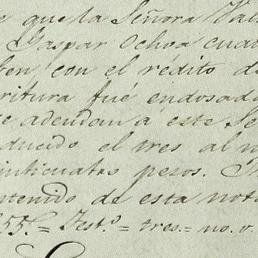 e que la Señora Val
Gaspar Ochoa cuat
ben con el rédito de
ritura fué endosad
e adeudan á este Se
ducido el tres al m
inticuatro pesos.
ntenido de esta nota
55. = Test.º = tres. = no. v.